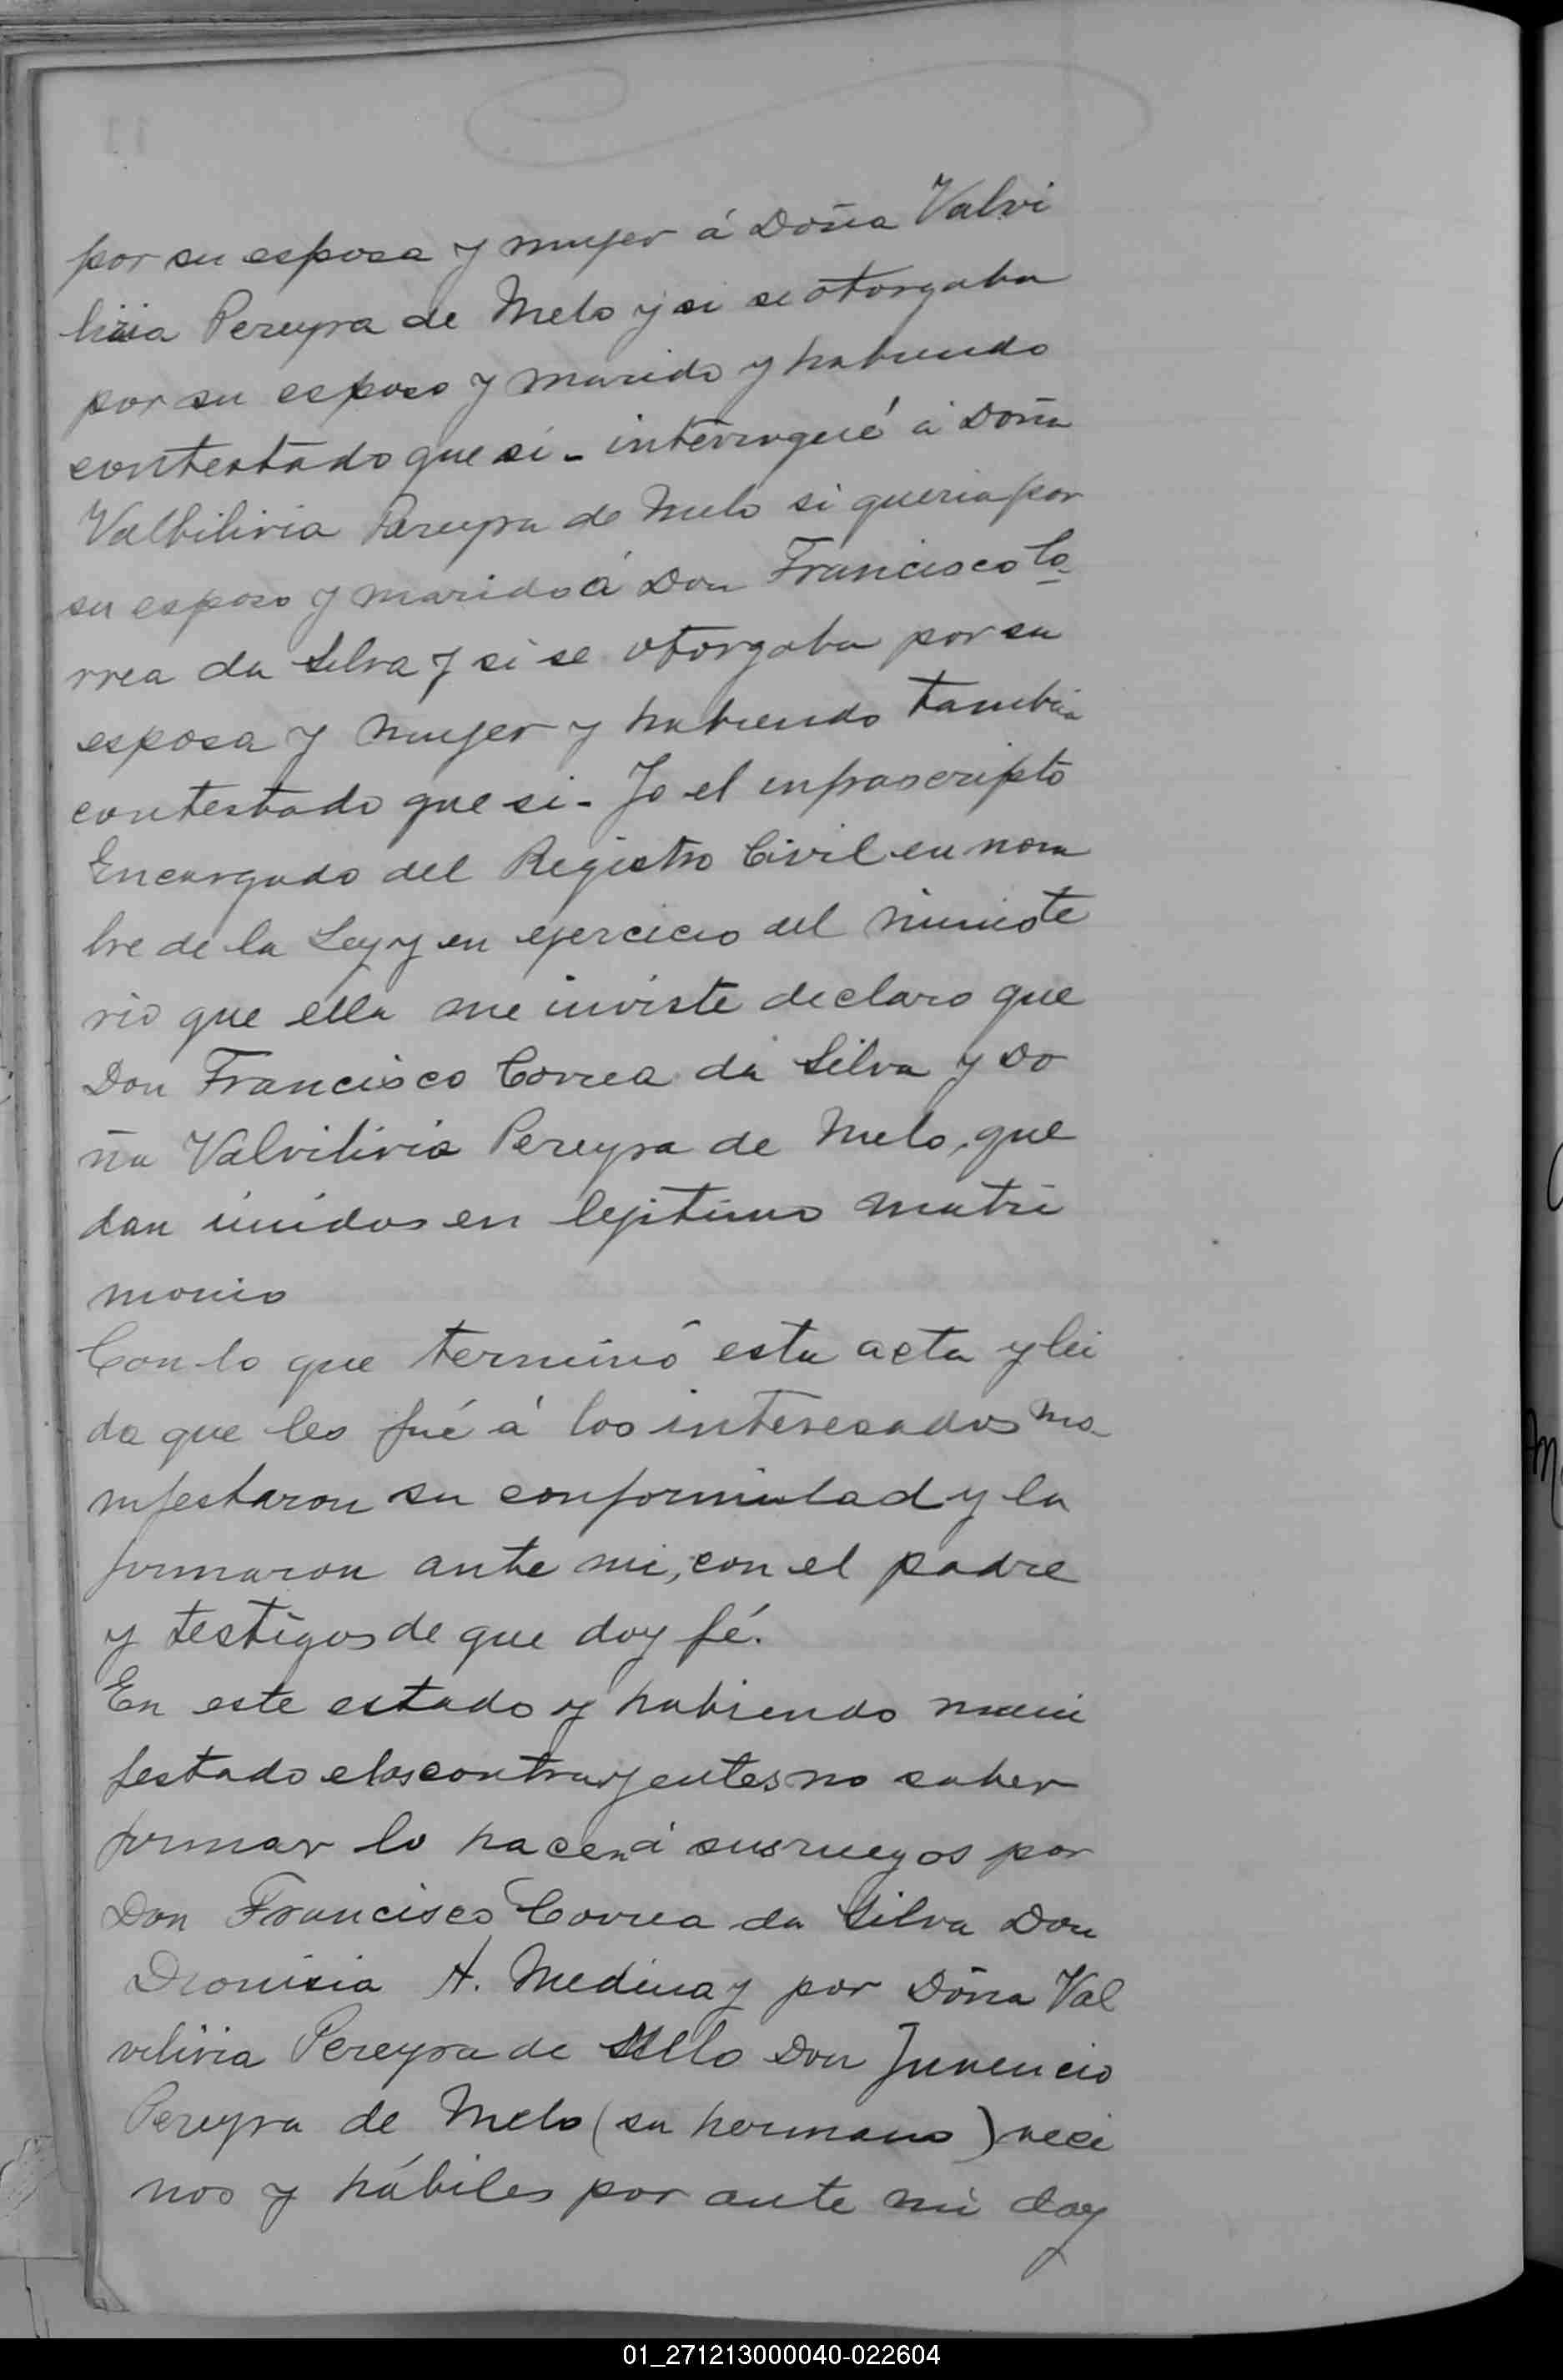 por su esposa y mujer á Doña Valvi
livia Pereyra de Melo y si se otorgaba
por su esposo y marido y habiendo
contestado que si - interrogué á Doña
Valbilivia Pereyra de Melo si queria por
su esposo y marido á Don Francisco Co-
rrea da Silva y si se otorgaba por su
esposa y mujer y habiendo tambien
contestado que si - Yo el infrascripto
Encargado del Registro Civil en nom
bre de la Ley y en ejercicio del ministe
rio que ella me inviste declaro que
Don Francisco Correa da Silva y Do
ña Valvilivia Pereyra de Melo, que
dan unidos en lejitimo matri
monio
Con lo que terminó esta acta y lei
da que les fué á los interesados ma-
nifestaron su conformidad y la
firmaron ante mi, con el padre
y testigos de que doy fé.
En este estado y habiendo mani
festado los contrayentes no saber
firmar lo hacen á sus ruegos por
Don Francisco Correa da Silva Don
Dionisia A. Medina y por Doña Val
vilivia Pereyra de Mello Don Juvencio
Pereyra de Melo (su hermano) veci
nos y hábiles por ante mi doy
01_271213000040-022604